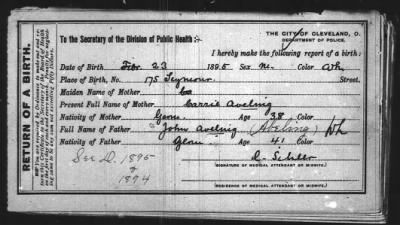 THE CITY OF CLEVELAND, O.
DEPARTMENT OF POLICE.
To the Secretary of the Division of Public Health:-
I hereby make the following report of a birth:
Date of Birth Febr 23 1895 Sex M. Color Wh
Place of Birth, No. 175 Seymour Street.
Maiden Name of Mother Ca
Present Full Name of Mother Carrie Aveling
Nativity of Mother Age 38 Color
Full Name of Father John Aveling (Abeling) Wh
Nativity of Father Age 41 Color
See D. 1895
& 1894
(SIGNATURE OF MEDICAL ATTENDANT OR MIDWIFE.)
(RESIDENCE OF MEDICAL ATTENDANT OR MIDWIFE.)
RETURN OF A BIRTH.